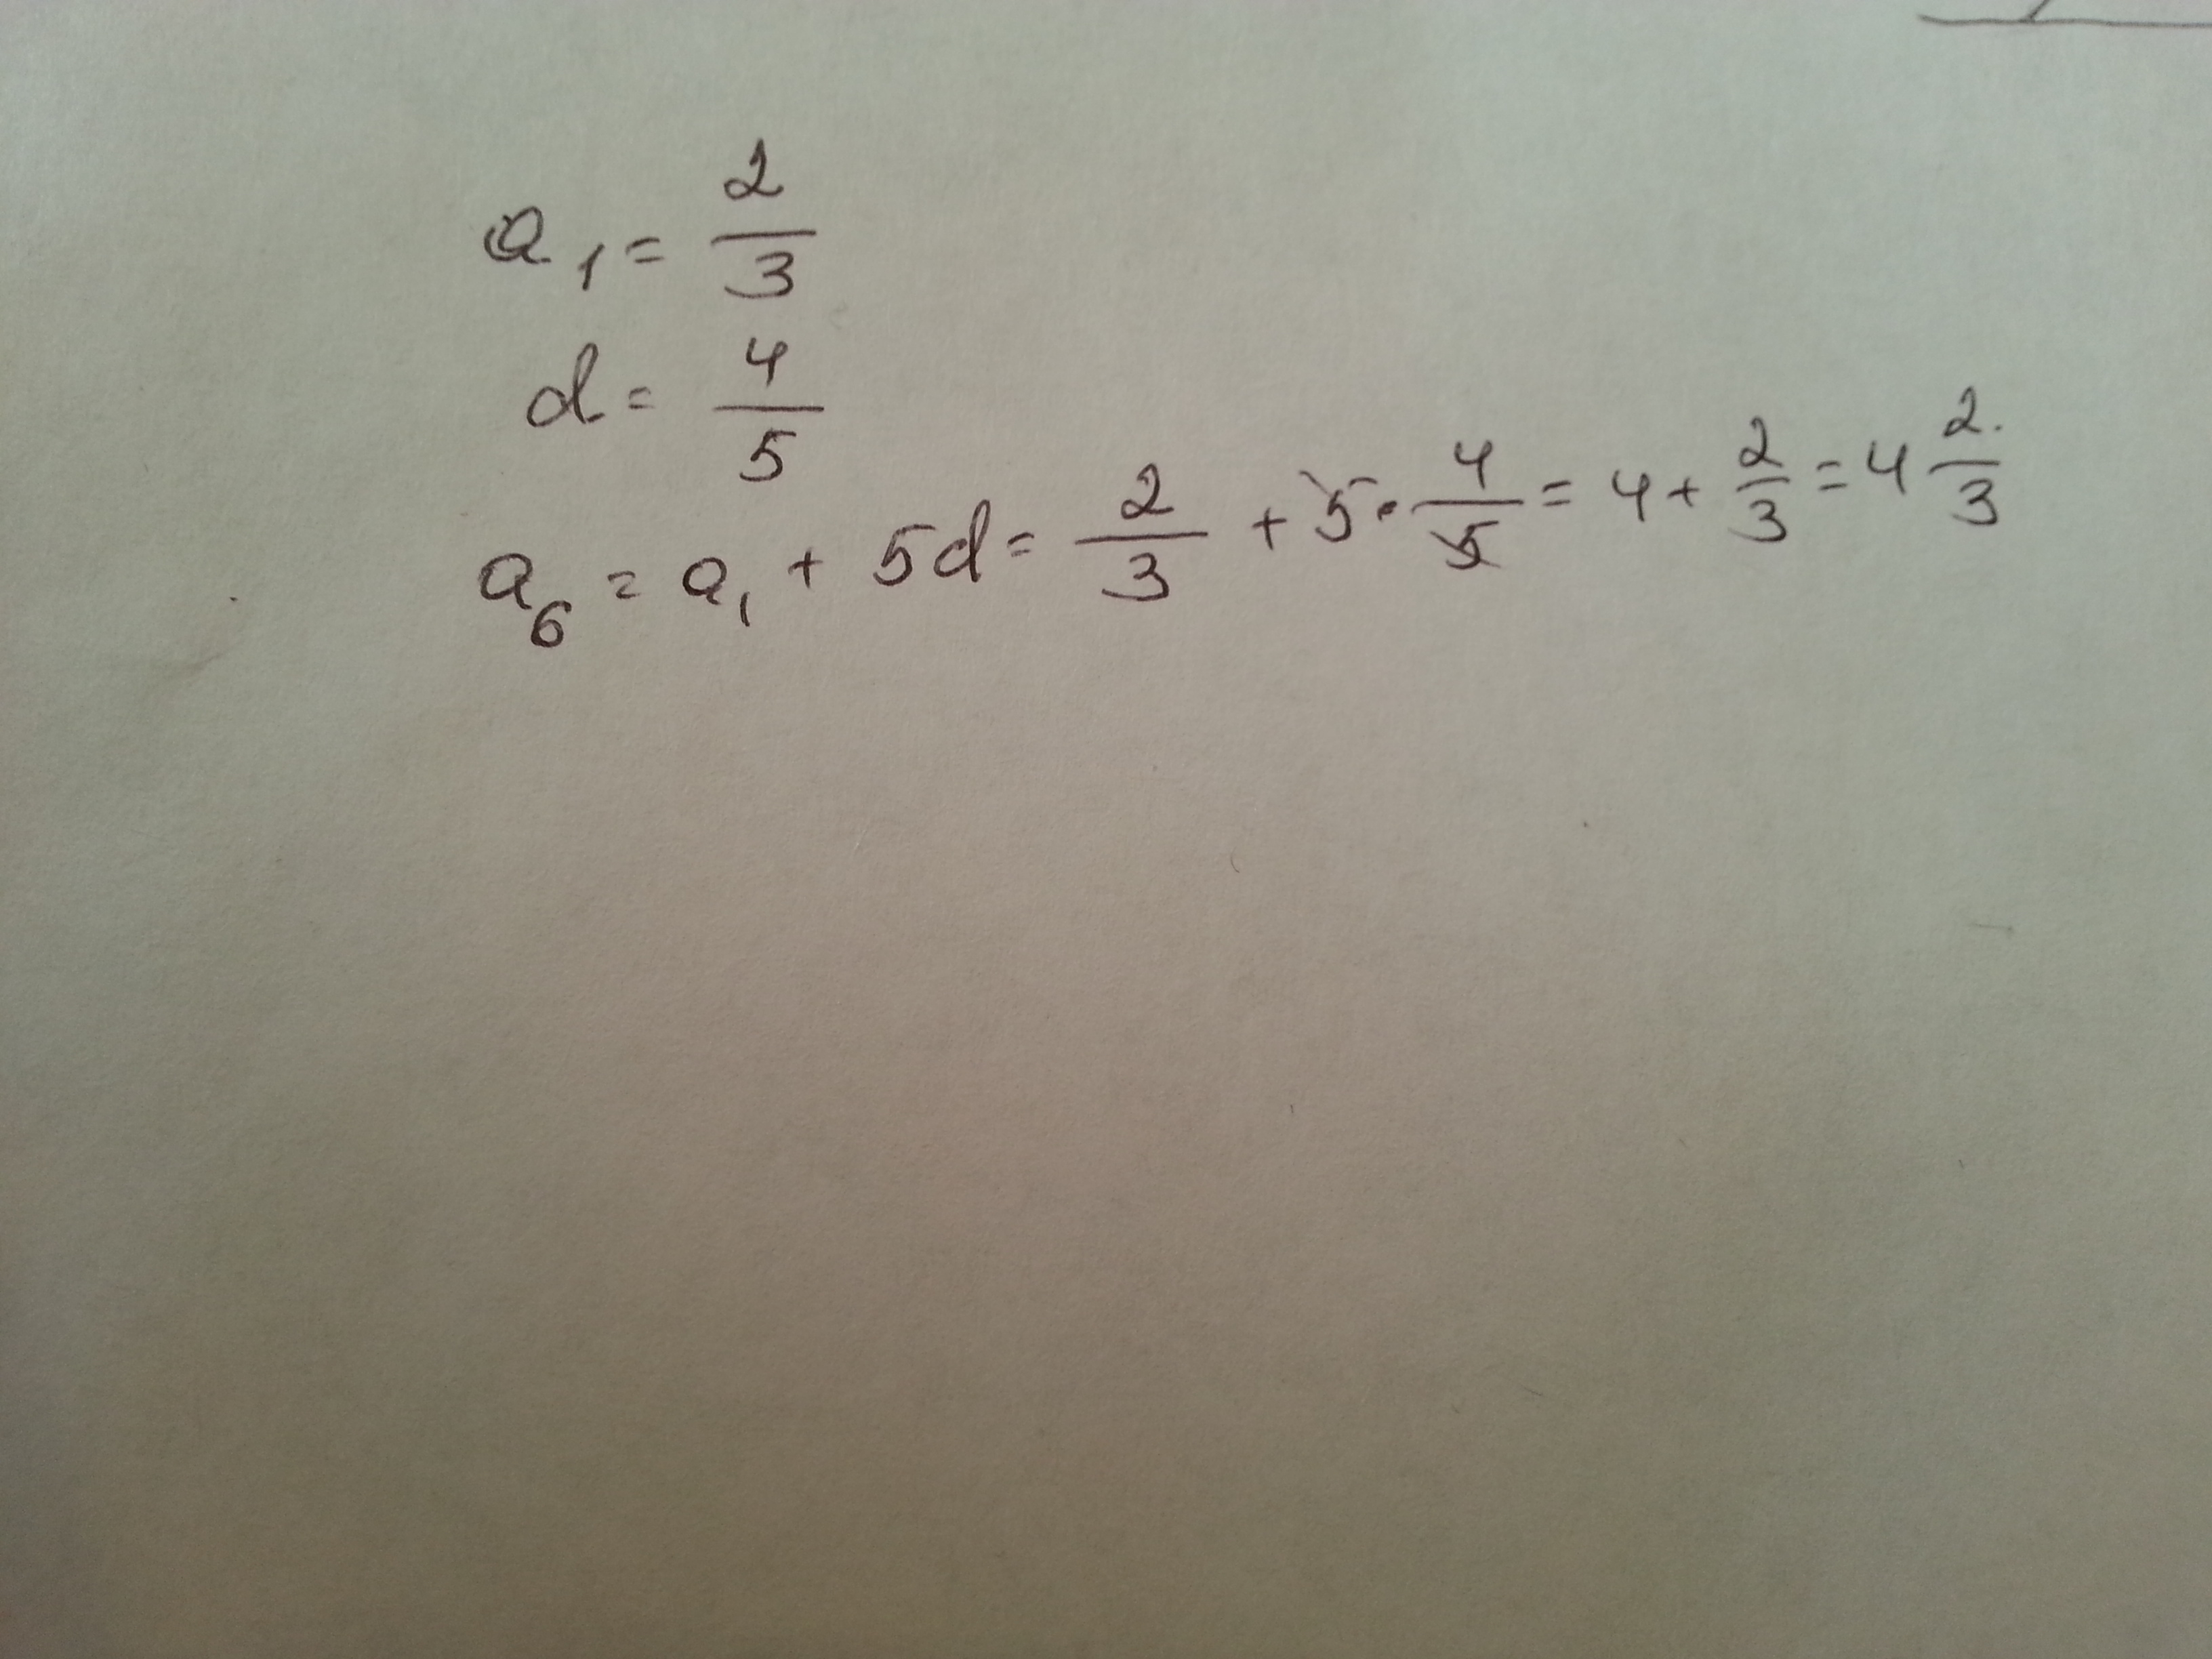 a₁ = 2/3
d = 4/5
a₆ = a₁ + 5d = 2/3 + 5 · 4/5 = 4 + 2/3 = 4 2/3